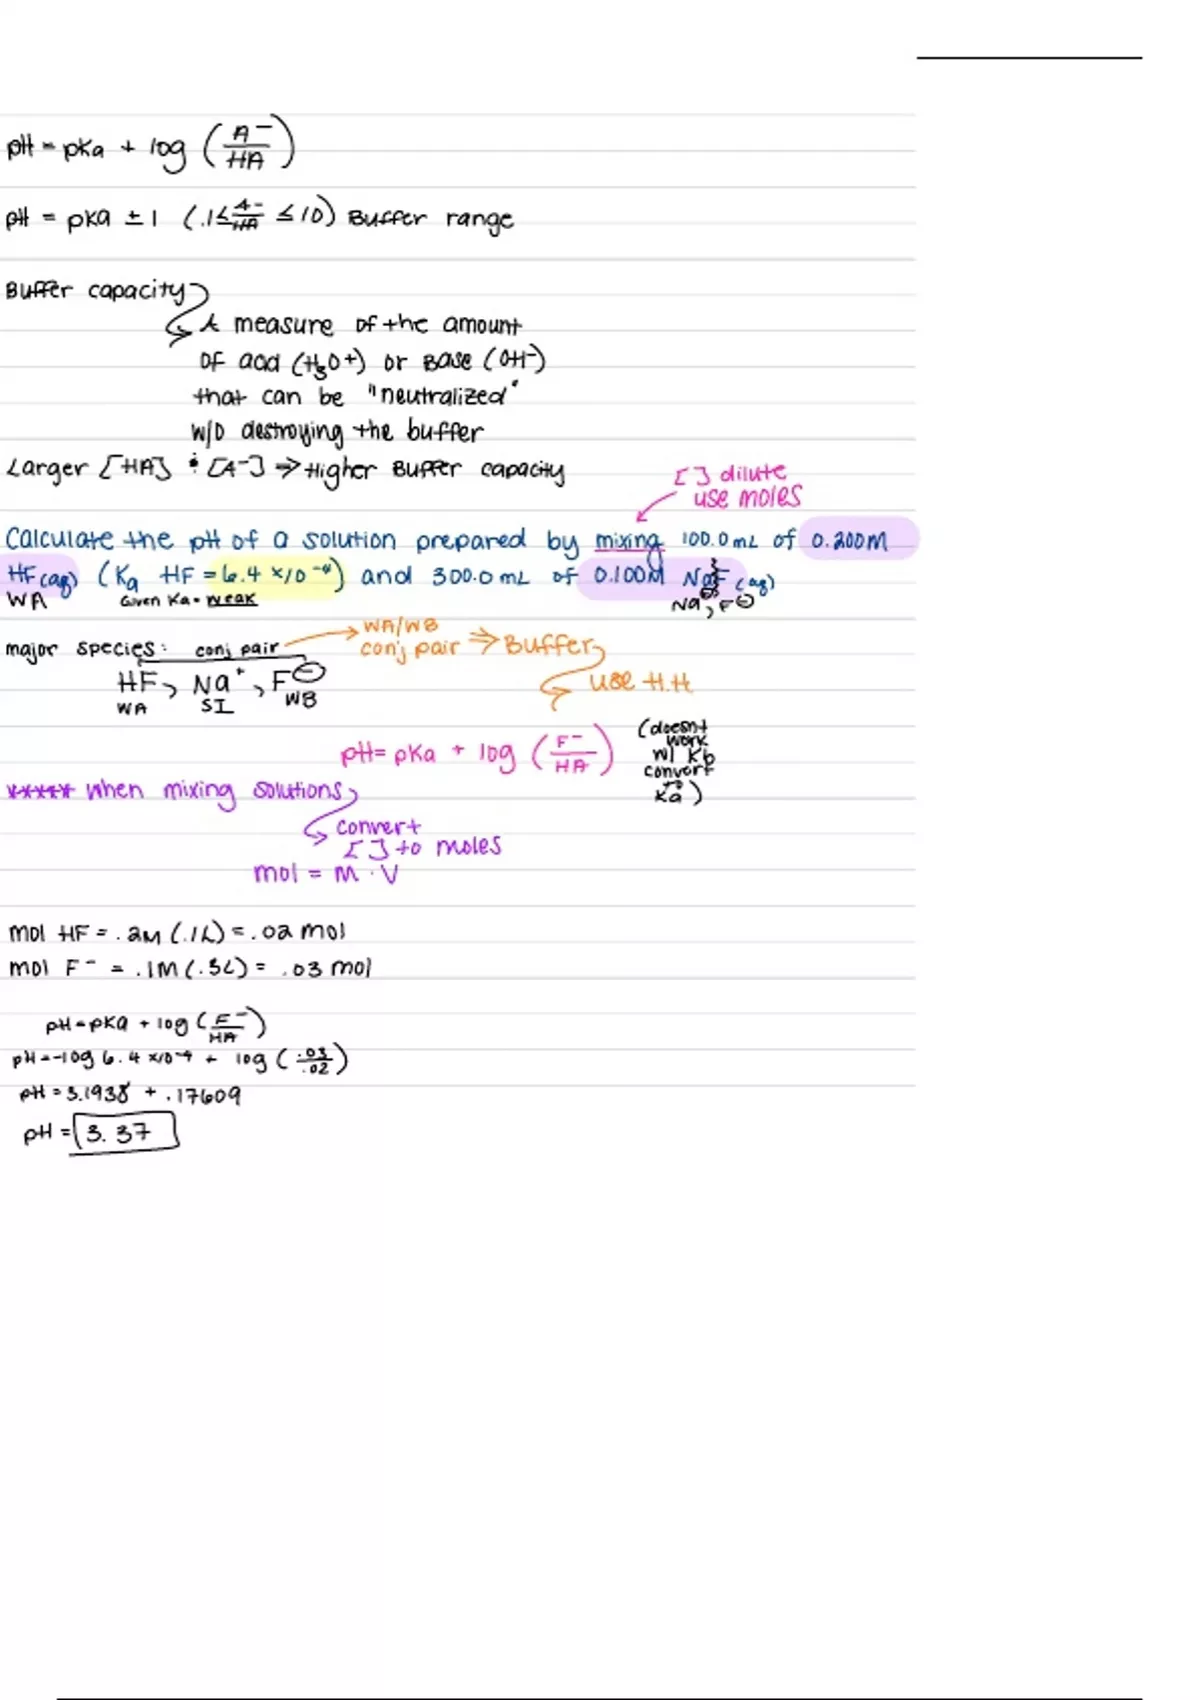 pH = pKa + log (A⁻/HA)
pH = pKa ± 1 (.1 ≤ A⁻/HA ≤ 10) Buffer range
Buffer capacity
A measure of the amount
of acid (H₃O+) or Base (OH⁻)
that can be "neutralized"
w/o destroying the buffer
Larger [HA] & [A⁻] ⇒ Higher Buffer capacity
[ ] dilute
use moles
Calculate the pH of a solution prepared by mixing 100.0 mL of 0.200M
HF(aq) (Ka HF = 6.4 x10⁻⁴) and 300.0 mL of 0.100M NaF (aq)
WA Given Ka = weak Na⊕, F⊖
WA/WB
major species: conj pair conj pair ⇒ Buffer
HF, Na⁺, F⊖ use H.H
WA SI WB
pH = pKa + log (F⁻/HA) (doesnt
work
w/ Kb
convert
to
Ka)
***** when mixing solutions
convert
[ ] to moles
mol = M · V
mol HF = .2M (.1L) = .02 mol
mol F⁻ = .1M (.3L) = .03 mol
pH = pKa + log (F⁻/HA)
pH = -log 6.4 x10⁻⁴ + log (.03/.02)
pH = 3.1938 + .17609
pH = 3.37